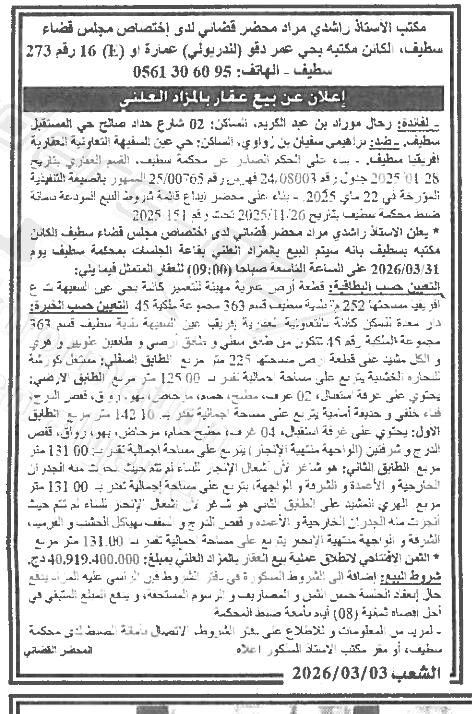 مكتب الاستاذ راشدي مراد محضر قضائي لدى إختصاص مجلس قضاء
سطيف، الكائن مكتبه بحي عمر دقو (لندريولي) عمارة او (E) 16 رقم 273
سطيف - الهاتف: 95 60 30 0561
إعلان عن بيع عقار بالمزاد العلني
- لفائدة: رحال موراد بن عبد الكريم، الساكن: 02 شارع حداد صالح حي المستقبل
سطيف. - ضد: براهيمي سفيان بن زواوي، الساكن: حي عين السفيهة التعاونية العقارية
إفريقيا سطيف. - بناء على الحكم الصادر عن محكمة سطيف، القسم العقاري بتاريخ
2025/01/28 جدول رقم 24/08003 فهرس رقم 25/00765 الممهور بالصيغة التنفيذية
المؤرخة في 22 ماي 2025. - بناء على محضر إيداع قائمة شروط البيع المودعة بأمانة
ضبط محكمة سطيف بتاريخ 2025/11/26 تحت رقم 2025/151
* يعلن الاستاذ راشدي مراد محضر قضائي لدى إختصاص مجلس قضاء سطيف الكائن
مكتبه بسطيف بانه سيتم البيع بالمزاد العلني بقاعة الجلسات بمحكمة سطيف يوم
2026/03/31 على الساعة التاسعة صباحا (09:00) للعقار المتمثل فيما يلي:
التعيين حسب البطاقية: قطعة أرض عمرية مهيئة للتعمير كائنة بحي عين السفيهة ت ع
افريقيا مساحتها 252 م بلدية سطيف قسم 363 مجموعة ملكية 45. التعيين حسب الخبرة:
دار معدة للسكن كائنة بالتعاونية العقارية إفريقيا عين السفيهة بلدية سطيف قسم 363
مجموعة الملكية رقم 45 تتكون من طابق سفلي و طابق أرضي و طابقين علويين و هري
و الكل مشيد على قطعة ارض مساحتها 225 متر مربع الطابق السفلي: مستغل كورشة
للنجارة الخشبية يتربع على مساحة اجمالية تقدر بـ 125.00 متر مربع الطابق الارضي:
يحتوي على غرفة إستقبال، 02 غرف، مطبخ، حمام، مرحاض، بهو، رواق، قفص الدرج،
فناء خلفي و حديقة أمامية يتربع على مساحة إجمالية تقدر بـ 142.10 متر مربع الطابق
الاول: يحتوي على غرفة إستقبال، 04 غرف، مطبخ، حمام، مرحاض، بهو، رواق، قفص
الدرج و شرفتين (الواجهة منتهية الإنجاز) يتربع على مساحة إجمالية تقدر بـ 131.00 متر
مربع الطابق الثاني: هو شاغر لأن أشغال الإنجاز للبناء لم تتم حيث أنجزت منه الجدران
الخارجية و الأعمدة و الشرفة و الواجهة، يتربع على مساحة إجمالية تقدر بـ 131.00 متر
مربع الهري المشيد على الطابق الثاني هو شاغر لأن أشغال الإنجاز للبناء لم تتم حيث
أنجزت منه الجدران الخارجية و الأعمدة و قفص الدرج و السقف بهياكل الخشب و القرميد،
الشرفة و الواجهة منتهية الإنجاز يتربع على مساحة اجمالية تقدر بـ 131.00 متر مربع
* الثمن الافتتاحي لانطلاق عملية بيع العقار بالمزاد العلني بمبلغ: 40,919.400.000 دج.
شروط البيع: إضافة الى الشروط المذكورة في دفتر الشروط فإن الراسي عليه المزاد يدفع
حال إنعقاد الجلسة خمس الثمن و المصاريف و الرسوم المستحقة، و يدفع المبلغ المتبقي في
أجل أقصاه ثمانية (08) أيام بأمانة ضبط المحكمة
- لمزيد من المعلومات و للاطلاع على دفتر الشروط، الاتصال بأمانة الضبط لدى محكمة
سطيف، أو مقر مكتب الاستاذ المذكور اعلاه المحضر القضائي
الشعب 2026/03/03